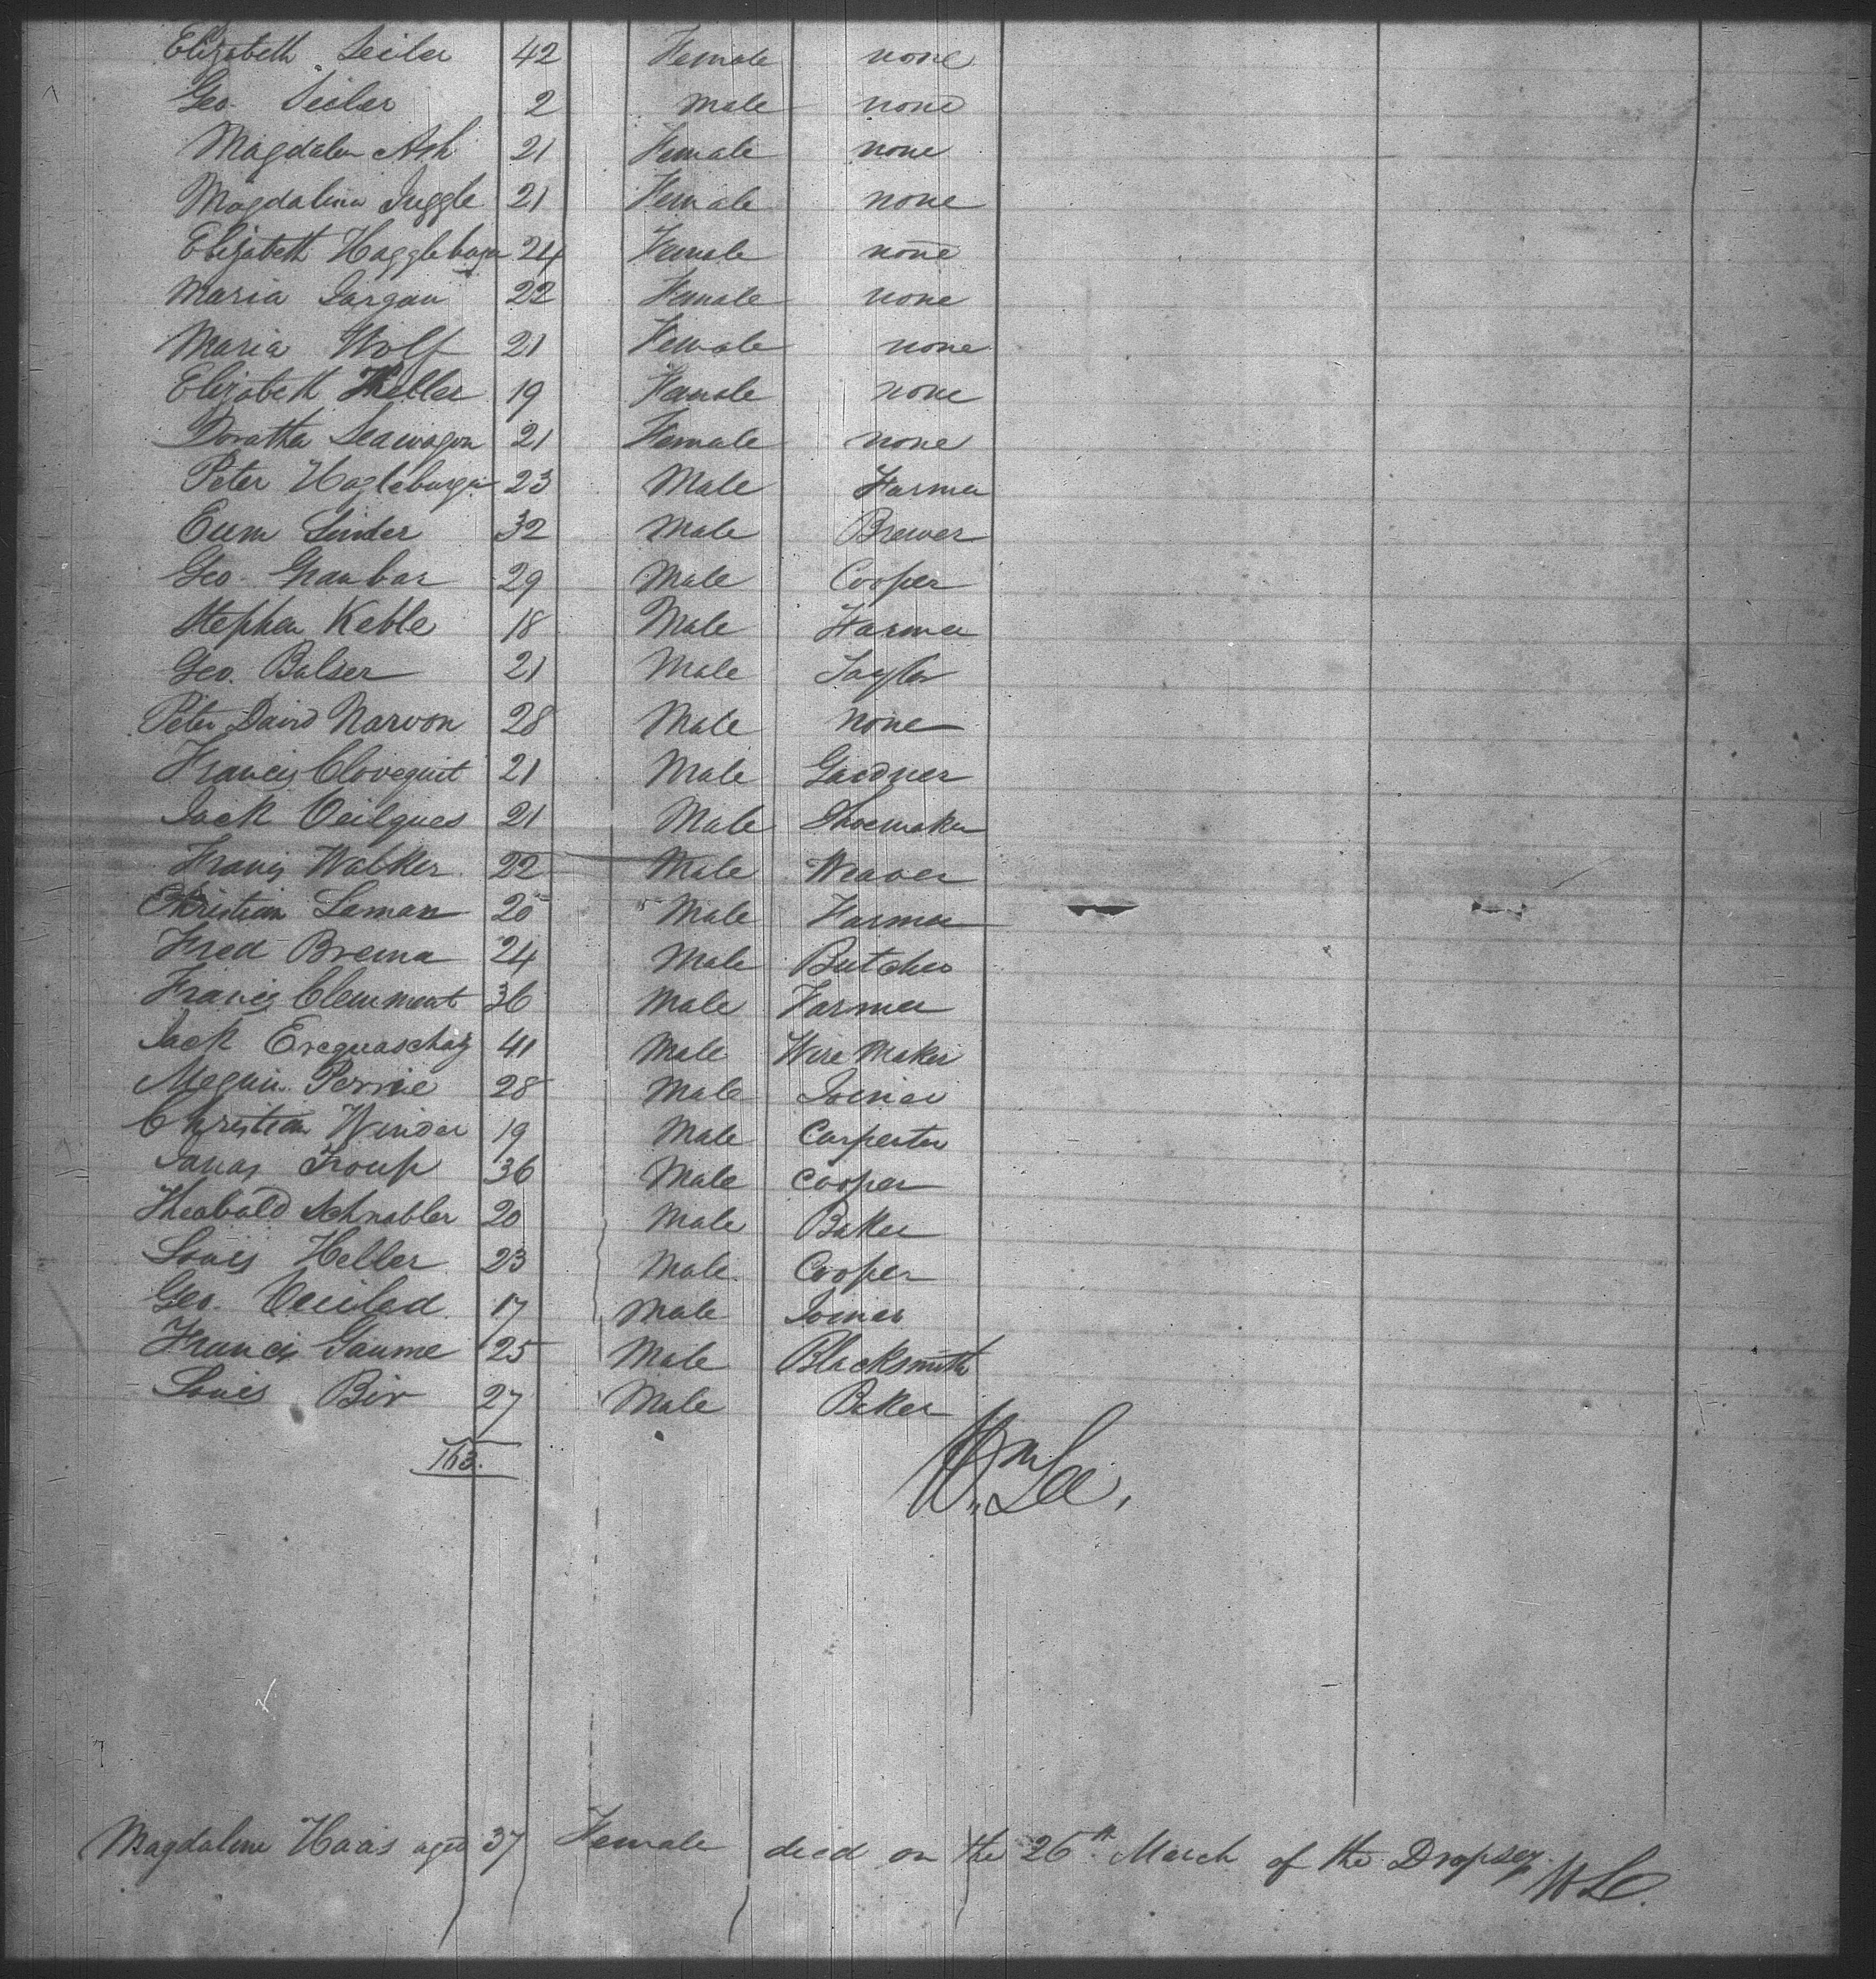 Elizabeth Seiler 42 Female none
Geo. Seiler 2 male none
Magdalen Ash 21 Female none
Magdalina Juggle 21 Female none
Elizabeth Hagglebuga 24 Female none
Maria Jargau 22 Female none
Maria Wolf 21 Female none
Elizabeth Heller 19 Female none
Doratha Seawagon 21 Female none
Peter Hagleburga 23 Male Farmer
Linder 32 Male Brewer
Geo. Graubar 29 Male Cooper
Stephen Keble 18 Male Farmer
Geo. Balser 21 Male Taylor
Peter David Narvon 28 Male none
Francis Clovequit 21 Male Gardner
Jack Veilques 21 Male Shoemaker
Francis Walker 22 Male Weaver
Christian Laman 20 Male Farmer
Fred Brema 24 Male Butcher
Francis Clemment 36 Male Farmer
Jack 41 Male Wire Maker
Perrie 28 Male Joiner
Christian Winder 19 Male Carpenter
Troup 36 Male Cooper
Theabald Schnabler 20 Male Baker
Louis Heller 23 Male Cooper
Geo. 17 Male Joiner
Francis Gaume 25 Male Blacksmith
Louis Bir 27 Male Baker
165.
Wm Lee.
Magdalene Haas aged 37 Female died on the 26th March of the Dropsey. WL.